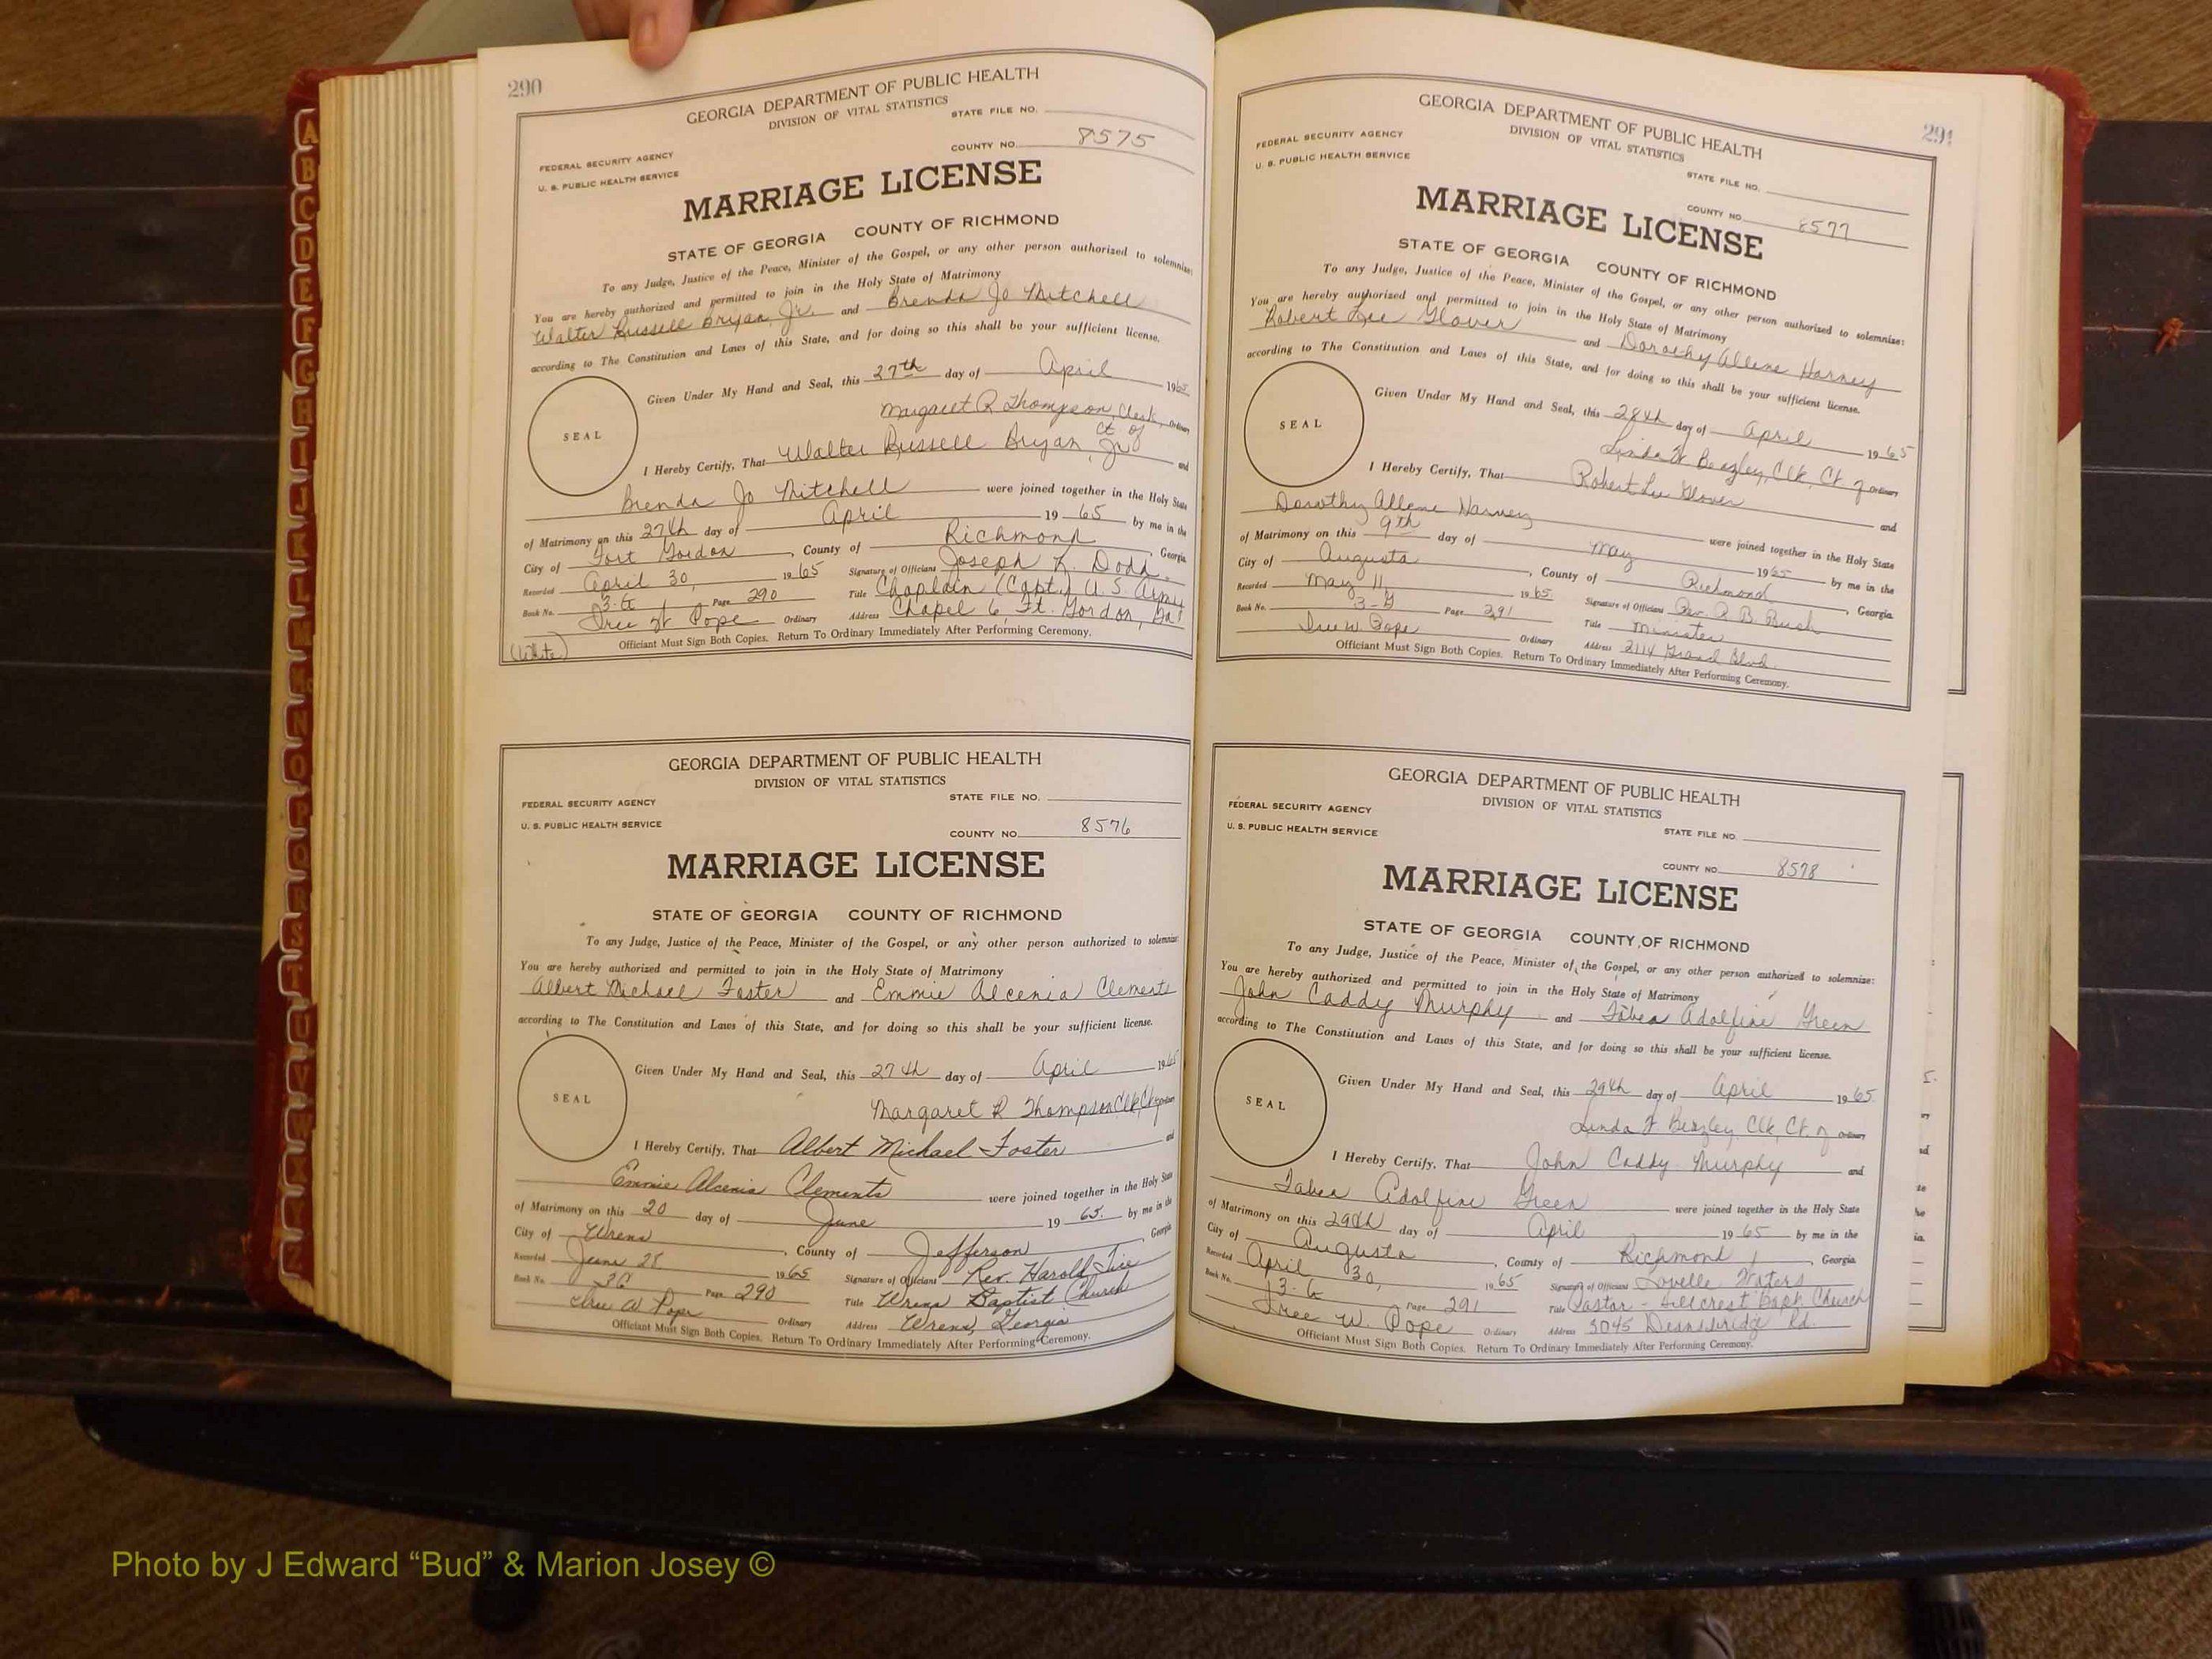 290
GEORGIA DEPARTMENT OF PUBLIC HEALTH
DIVISION OF VITAL STATISTICS
STATE FILE NO.
FEDERAL SECURITY AGENCY
U. S. PUBLIC HEALTH SERVICE
COUNTY NO. 8575
MARRIAGE LICENSE
STATE OF GEORGIA COUNTY OF RICHMOND
To any Judge, Justice of the Peace, Minister of the Gospel, or any other person authorized to solemnize:
You are hereby authorized and permitted to join in the Holy State of Matrimony
Walter Russell Bryan Jr. and Brenda Jo Mitchell
according to The Constitution and Laws of this State, and for doing so this shall be your sufficient license.
SEAL
Given Under My Hand and Seal, this 27th day of April 1965
Margaret R Thompson, Clerk, Ct of Ordinary
I Hereby Certify, That Walter Russell Bryan, Jr and
Brenda Jo Mitchell were joined together in the Holy State
of Matrimony on this 27th day of April 19 65 by me in the
City of Fort Gordon, County of Richmond, Georgia
Recorded April 30, 1965 Signature of Officiant Joseph K. Dodd
Book No. 3-G Page 290 Title Chaplain (Capt.) U. S. Army
W Pope Ordinary Address Chapel 6, Ft. Gordon, Ga
Officiant Must Sign Both Copies. Return To Ordinary Immediately After Performing Ceremony.
(White)
GEORGIA DEPARTMENT OF PUBLIC HEALTH
DIVISION OF VITAL STATISTICS
FEDERAL SECURITY AGENCY
U. S. PUBLIC HEALTH SERVICE
STATE FILE NO.
COUNTY NO. 8576
MARRIAGE LICENSE
STATE OF GEORGIA COUNTY OF RICHMOND
To any Judge, Justice of the Peace, Minister of the Gospel, or any other person authorized to solemnize:
You are hereby authorized and permitted to join in the Holy State of Matrimony
Albert Michael Foster and Emmie Alcenia Clements
according to The Constitution and Laws of this State, and for doing so this shall be your sufficient license.
SEAL
Given Under My Hand and Seal, this 27th day of April 1965
Margaret R Thompson Clk, Ordinary
I Hereby Certify, That Albert Michael Foster and
Emmie Alcenia Clements were joined together in the Holy State
of Matrimony on this 20 day of June 19 65. by me in the
City of Wrens, County of Jefferson, Georgia
Recorded June 28 1965 Signature of Officiant Rev. Harold Tice
Book No. 3G Page 290 Title Wrens Baptist Church
W Pope Ordinary Address Wrens, Georgia
Officiant Must Sign Both Copies. Return To Ordinary Immediately After Performing Ceremony.
291
GEORGIA DEPARTMENT OF PUBLIC HEALTH
DIVISION OF VITAL STATISTICS
FEDERAL SECURITY AGENCY
U. S. PUBLIC HEALTH SERVICE
STATE FILE NO.
COUNTY NO. 8577
MARRIAGE LICENSE
STATE OF GEORGIA COUNTY OF RICHMOND
To any Judge, Justice of the Peace, Minister of the Gospel, or any other person authorized to solemnize:
You are hereby authorized and permitted to join in the Holy State of Matrimony
Robert Lee Glover and Dorothy Allene Harvey
according to The Constitution and Laws of this State, and for doing so this shall be your sufficient license.
SEAL
Given Under My Hand and Seal, this 28th day of April 1965
Linda W Beazley, Clk, Ct. of Ordinary
I Hereby Certify, That Robert Lee Glover and
Dorothy Allene Harvey were joined together in the Holy State
of Matrimony on this 9th day of May 1965 by me in the
City of Augusta, County of Richmond, Georgia
Recorded May 11, 1965 Signature of Officiant Rev. R. B. Bush
Book No. 3-G Page 291 Title Minister
W. Pope Ordinary Address 2114 Grand Blvd.
Officiant Must Sign Both Copies. Return To Ordinary Immediately After Performing Ceremony.
GEORGIA DEPARTMENT OF PUBLIC HEALTH
DIVISION OF VITAL STATISTICS
FEDERAL SECURITY AGENCY
U. S. PUBLIC HEALTH SERVICE
STATE FILE NO.
COUNTY NO. 8578
MARRIAGE LICENSE
STATE OF GEORGIA COUNTY OF RICHMOND
To any Judge, Justice of the Peace, Minister of the Gospel, or any other person authorized to solemnize:
You are hereby authorized and permitted to join in the Holy State of Matrimony
John Caddy Murphy and Tabea Adolfine Green
according to The Constitution and Laws of this State, and for doing so this shall be your sufficient license.
SEAL
Given Under My Hand and Seal, this 29th day of April 1965
Linda W Beazley, Clk, Ct. of Ordinary
I Hereby Certify, That John Caddy Murphy and
Tabea Adolfine Green were joined together in the Holy State
of Matrimony on this 29th day of April 19 65 by me in the
City of Augusta, County of Richmond, Georgia
Recorded April 30, 1965 Signature of Officiant Lovelle Waters
Book No. 3-G Page 291 Title Pastor - Hillcrest Bapt. Church
W. Pope Ordinary Address 3045 Deansbridge Rd.
Officiant Must Sign Both Copies. Return To Ordinary Immediately After Performing Ceremony.
A
B
C
D
E
F
G
H
I
J
K
L
M
Mc
N
O
P
Q
R
S
T
U
V
W
X
Y
Z
Photo by J Edward “Bud” & Marion Josey ©